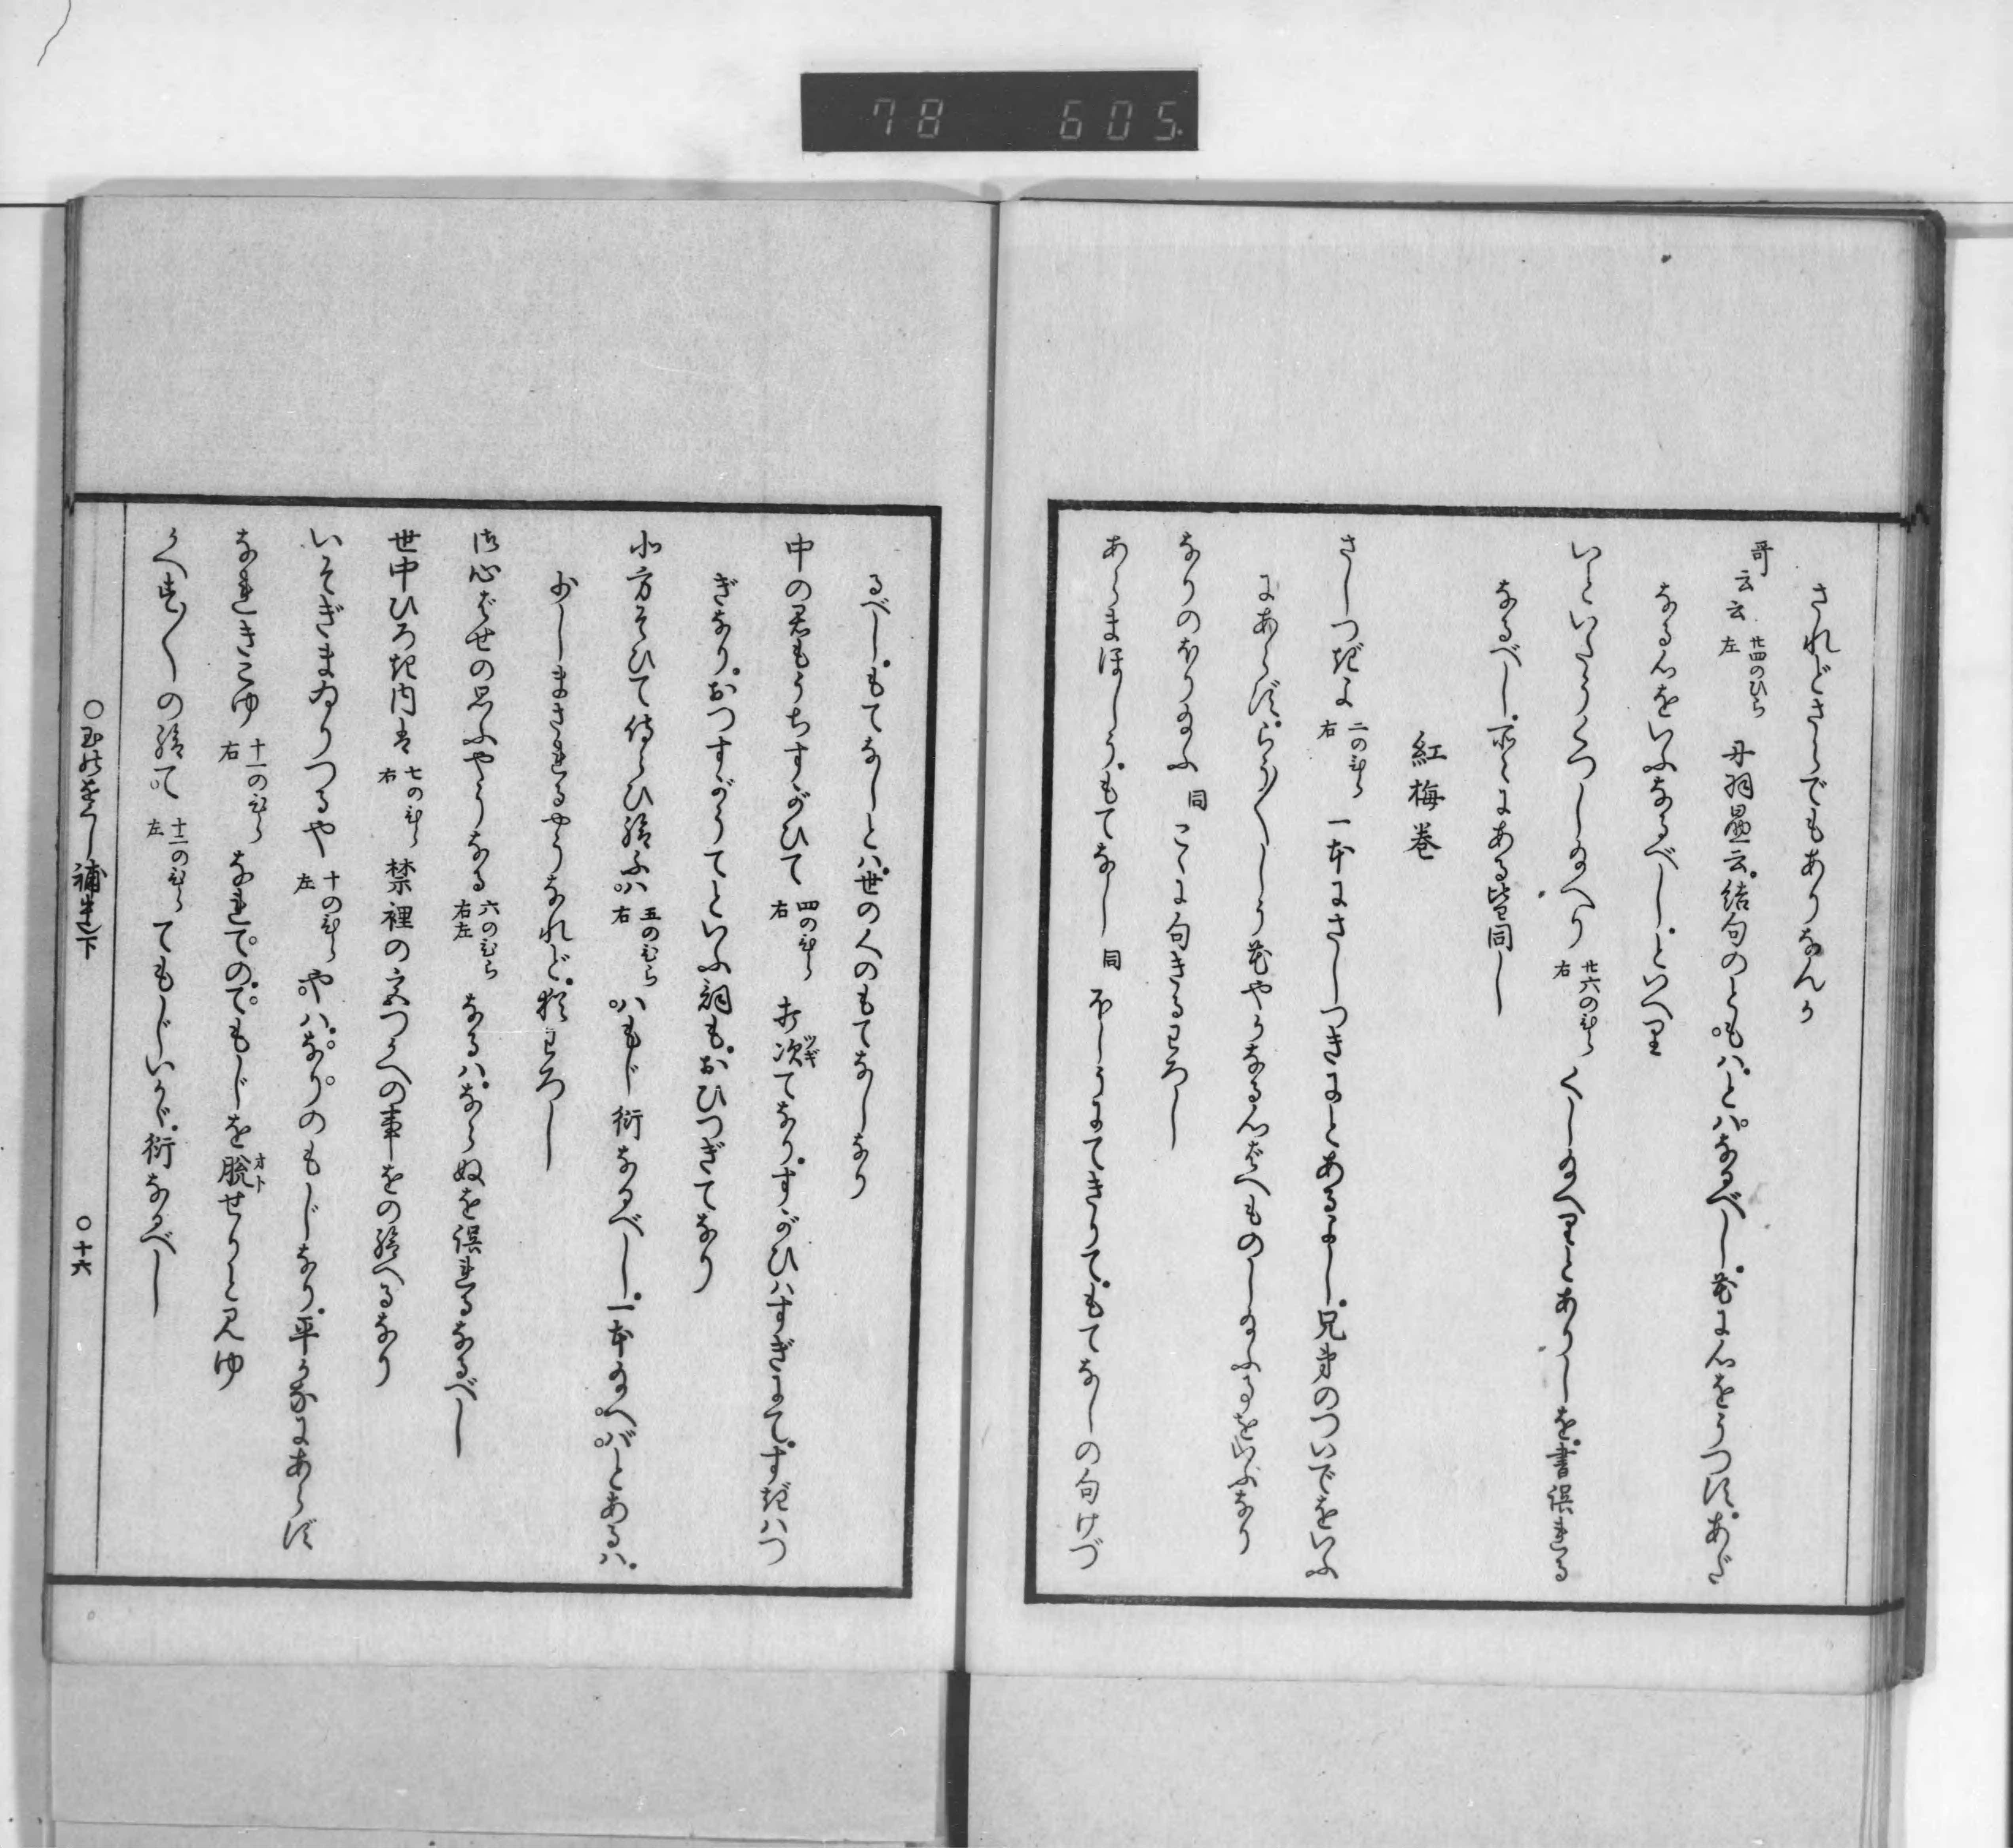 78 605.
されどさらでもありなんか
哥云云 廿四のひら左 丹羽勗云結句のともハとハなるべし花に心をうつすあだ
なる心をいふなるべしといへり
いといたうくつし給へり 廿六のひら右 くし給へりとありしを書誤れる
なるべし所々にある皆同じ
紅梅巻
さしつぎよ 二のひら右 一本にさしつきにとあるよし兄弟のついでをいふ
にあらずらう〳〵しう花やかなる心ばへものし給ふるをいふなり
なりのぼり給ふ 同 こゝに句きるわろし
あらまほしうもてなし 同 ほしうにてきりてもてなしの句けづ
るべしもてなしとハ世の人のもてなしなり
中の君もうちすがひて 四のひら右 お次てなりすがひハすぎにてすぎハつ
ぎなりおつすがうてといふ詞もおひつぎてなり
北方そひて侍らひ給ふハ 五のひら右 ハもじ衍なるべし一本給へバとあるハ
少しまされるやうなれど猶わろし
御心ばせの思ふやうなる 六のひら右左 なるハならぬを誤れるなるべし
世中ひろき内は 七のひら右 禁裡の宮つかへの事をの給へるなり
いそぎまゐりつるや 十のひら左 やハなりのもじなり平かなにあらず
なれきこゆ 十一のひら右 なれでのでもじを脱せりと見ゆ
かへす〴〵の給て 十二のひら左 てもじいかゞ衍なるべし
○玉の小ぐし補遺下 ○十六